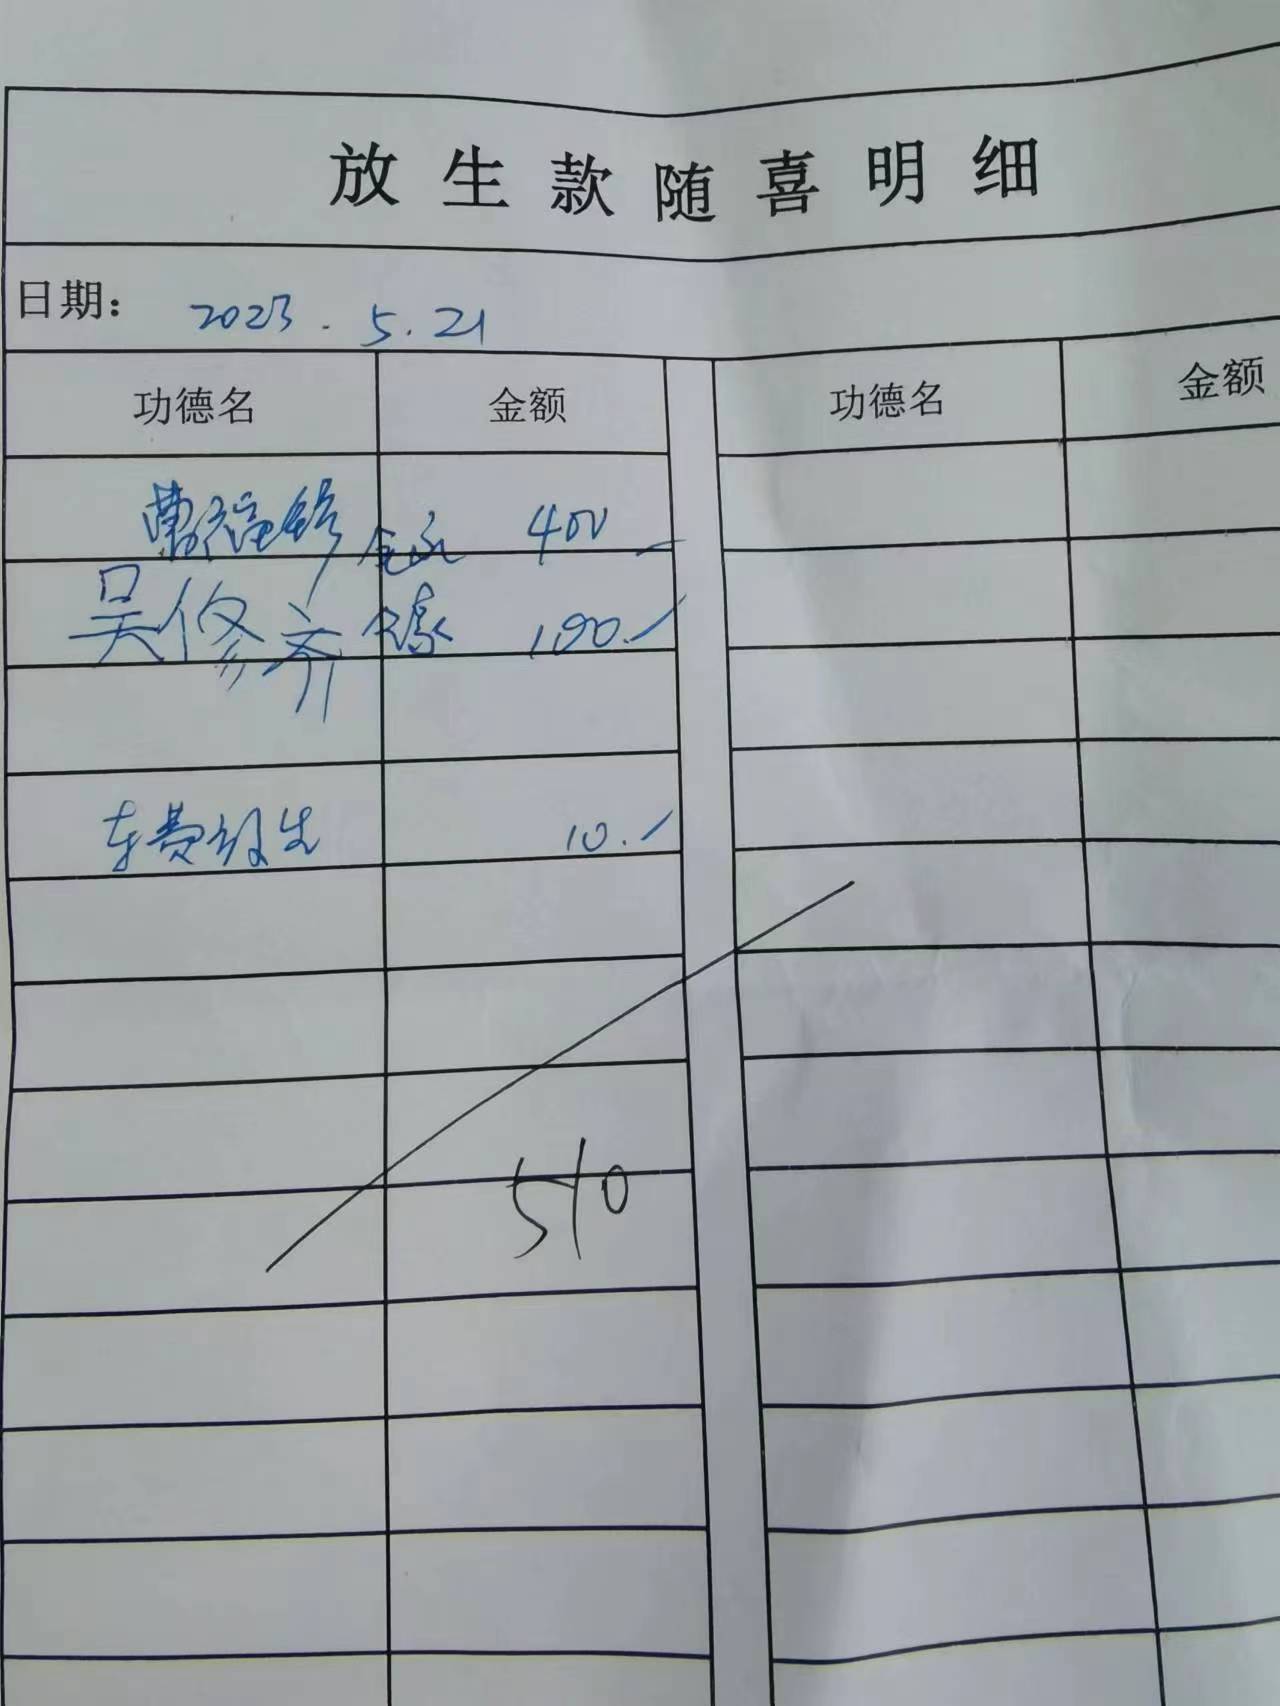 放生款随喜明细
日期： 2023.5.21
功德名 金额 功德名 金额
曹福 400
吴修齐 全家 100.
车费放生 10.
510